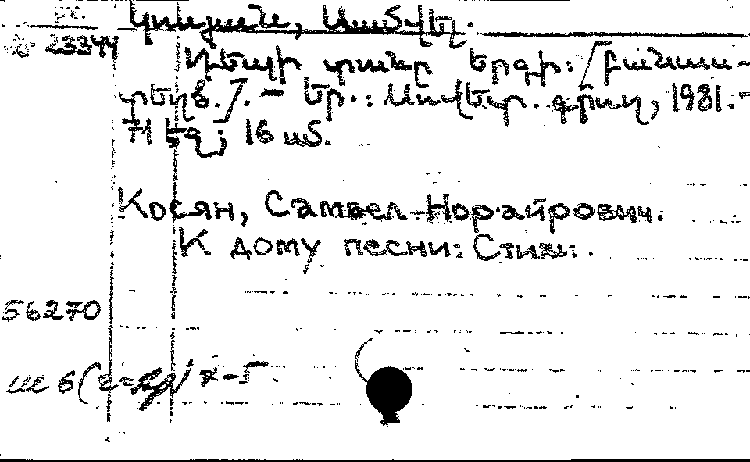 Կոսյան, Սամվել.
23344
Դեպի տաճար երգի: /Բանաս-
տեղծ./. – Եր.: Սովետ. գրող, 1981.-
71 էջ; 16 սմ.
Косян, Самвел Норайрович.
К дому песни: Стихи.
56270